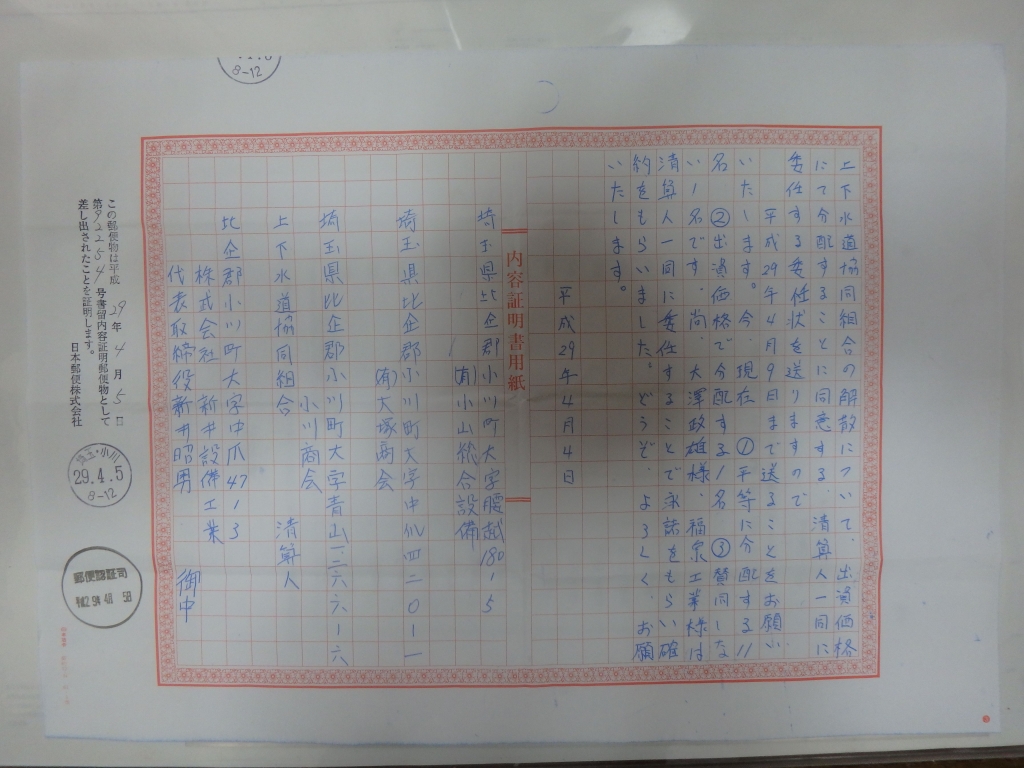 上下水道協同組合の解散について、出資価格
にて分配することに同意する、清算人一同に
委任する委任状を送りますので
平成29年4月9日まで送ることをお願い
いたします。今、現在①平等に分配する11
名②出資価格で分配する1名③賛同しな
い1名です。尚、大澤政雄様、福泉工業様は
清算人一同に委任することで承諾をもらい確
約をもらいました。どうぞ、よろしく、お願
いたします。
平成29年4月4日
内容証明書用紙
埼玉県比企郡小川町大字腰越180-5
(有)小山総合設備
埼玉県比企郡小川町大字中爪四二〇ー一
(有)大塚商会
埼玉県比企郡小川町大字青山二六六ー六
小川商会
上下水道協同組合 清算人
比企郡小川町大字中爪47-3
株式会社 新井設備工業
代表取締役新井昭男 御中
この郵便物は平成29年4月5日
第92254号書留内容証明郵便物として
差し出されたことを証明します。
日本郵便株式会社
埼玉・小川
29.4.5
8-12
郵便認証司
8-12